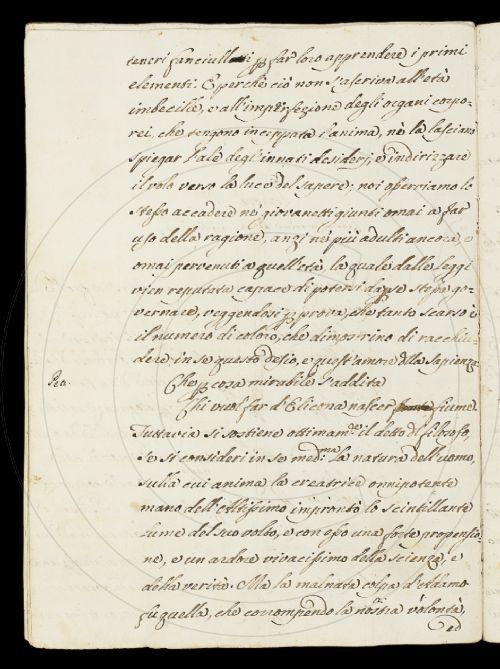 teneri fanciulletti p far loro apprendere i primi
elementi. E perchè ciò non s'ascriva all'età
imbecille, e all'imperfezione degli organi corpo-
rei, che tengono inceppata l'anima, nè la lasciano
spiegar l'ale degl'innati desiderj, e indirizzare
il volo verso la luce del sapere; noi osserviamo lo
stesso accadere ne' giovanetti giunti omai a far
uso della ragione, anzi ne' più adulti ancora, e
omai pervenuti a quell'età, la quale dalle leggi
vien reputata capace di potersi da per se stessa go-
vernare, veggendosi p prova, che tanto scarso è
il numero di coloro, che dimostrino di racchiu-
dere in se questo desio, e quest'amore della sapienza
Pea.
Che p cosa mirabile s'addita
Chi vuol far d'Elicona nascer fiume.
Tuttavia si sostiene ottimam.te il detto di filosofo,
se si consideri in se med.ma la natura dell'uomo,
sulla cui anima la creatrice onnipotente
mano dell'Altissimo improntò lo scintillante
lume del suo volto, e con esso una forte propensio-
ne, e un ardore vivacissimo della scienza, e
della verità. Ma la malnata colpa d'Adamo
fu quella, che corrompendo la nostra volontà,
ed